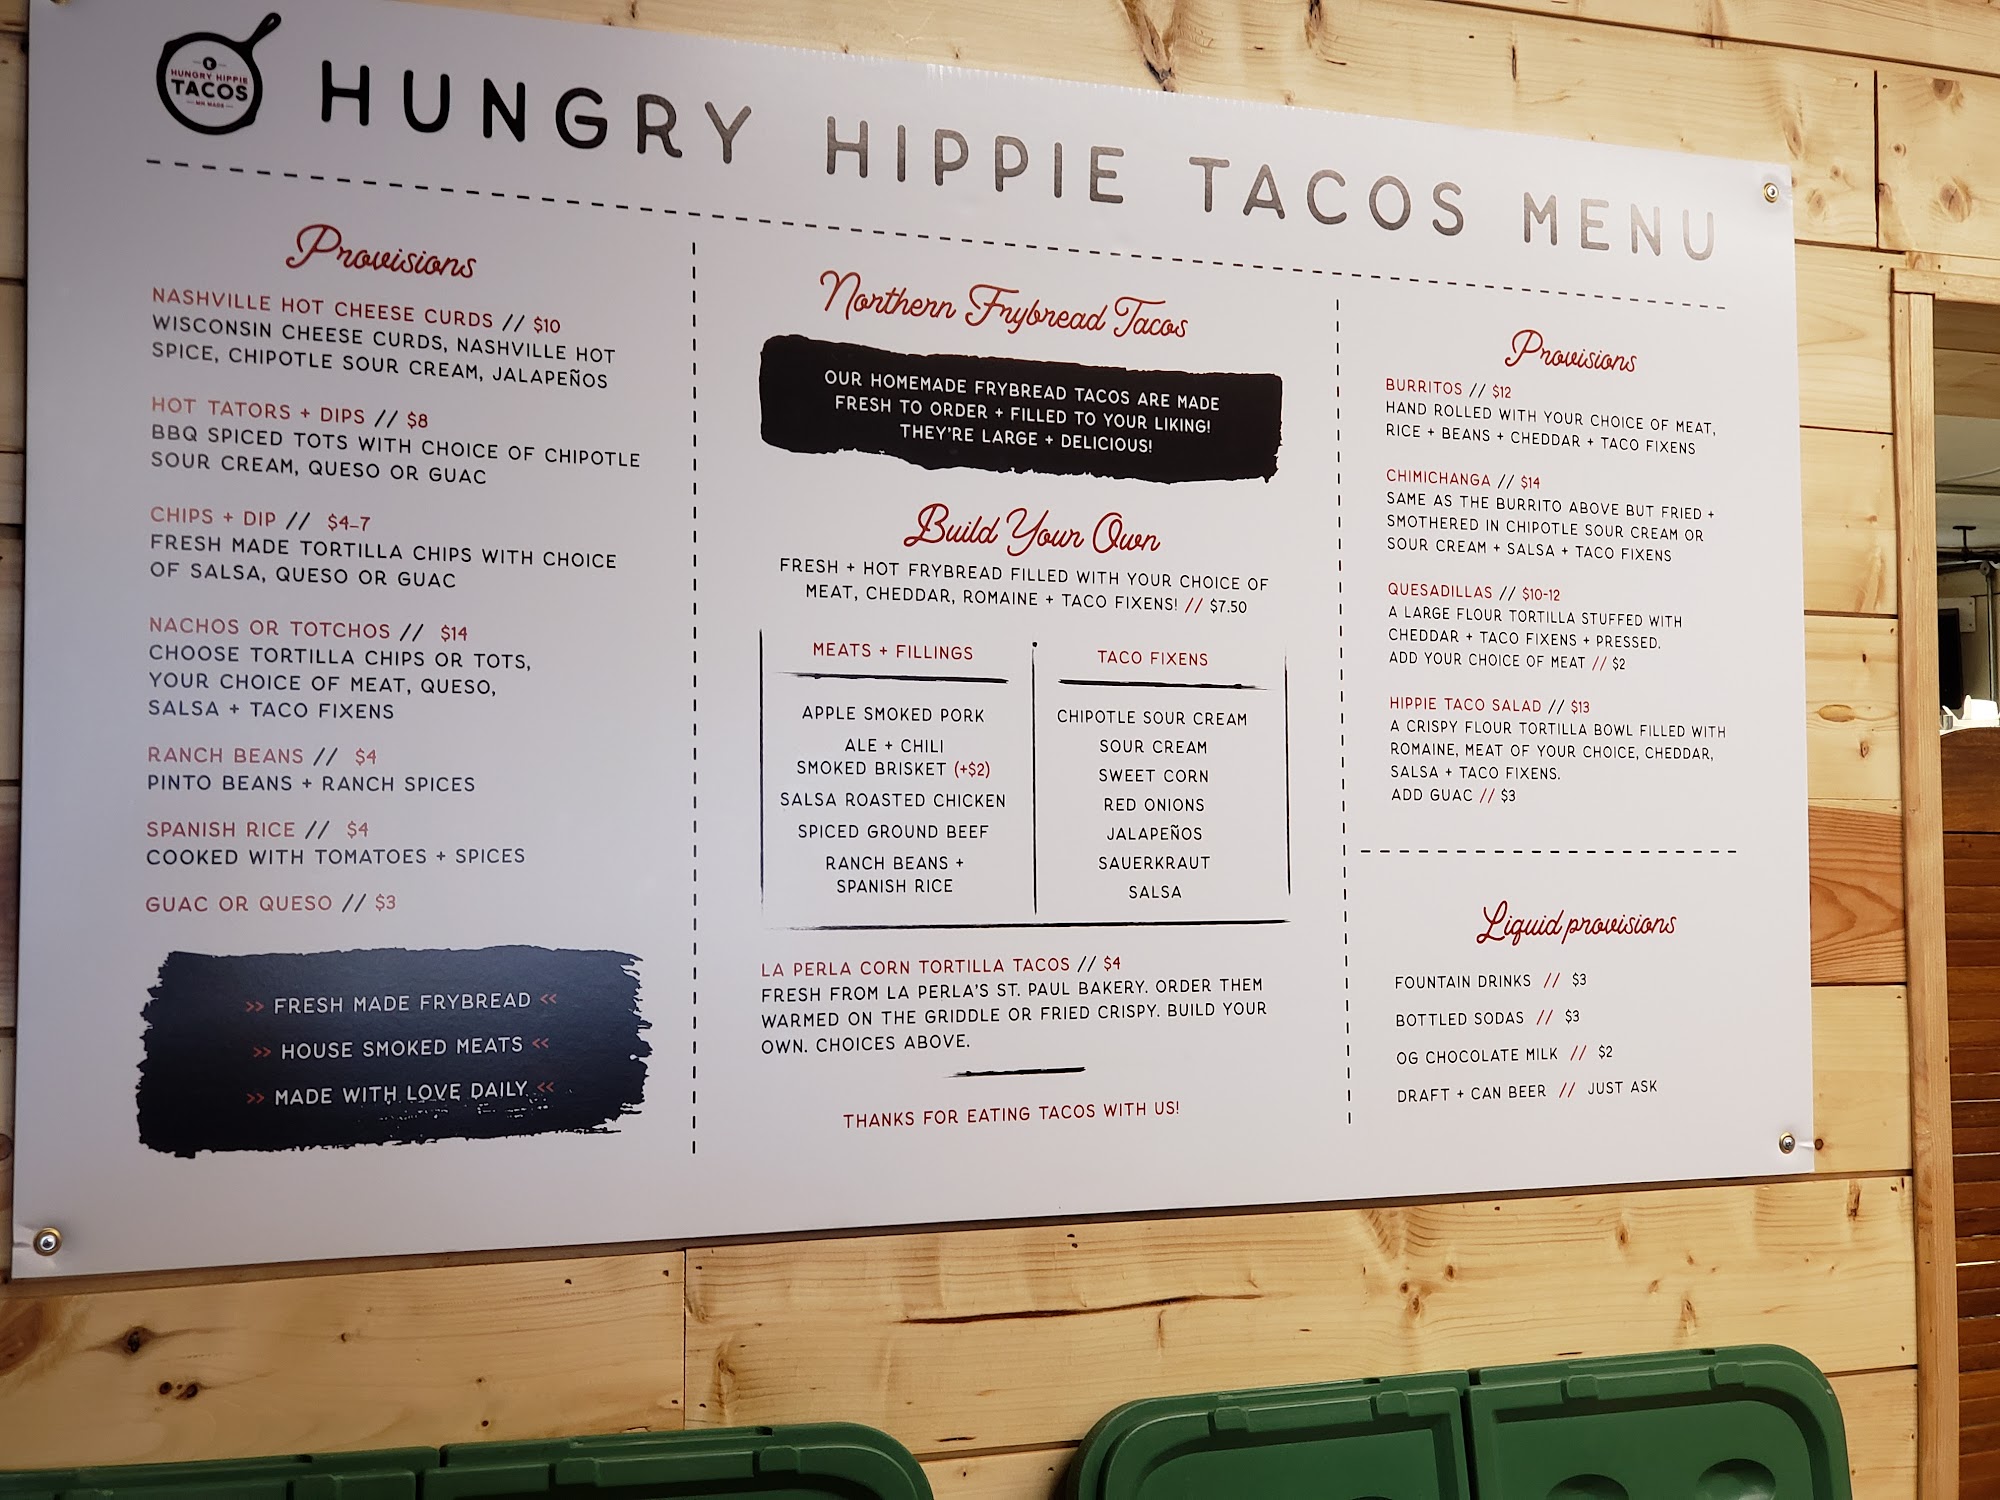 HUNGRY HIPPIE
TACOS
MN MADE
HUNGRY HIPPIE TACOS MENU
Provisions
NASHVILLE HOT CHEESE CURDS // $10
WISCONSIN CHEESE CURDS, NASHVILLE HOT
SPICE, CHIPOTLE SOUR CREAM, JALAPEÑOS
HOT TATORS + DIPS // $8
BBQ SPICED TOTS WITH CHOICE OF CHIPOTLE
SOUR CREAM, QUESO OR GUAC
CHIPS + DIP // $4-7
FRESH MADE TORTILLA CHIPS WITH CHOICE
OF SALSA, QUESO OR GUAC
NACHOS OR TOTCHOS // $14
CHOOSE TORTILLA CHIPS OR TOTS,
YOUR CHOICE OF MEAT, QUESO,
SALSA + TACO FIXENS
RANCH BEANS // $4
PINTO BEANS + RANCH SPICES
SPANISH RICE // $4
COOKED WITH TOMATOES + SPICES
GUAC OR QUESO // $3
>> FRESH MADE FRYBREAD <<
>> HOUSE SMOKED MEATS <<
>> MADE WITH LOVE DAILY <<
Northern Frybread Tacos
OUR HOMEMADE FRYBREAD TACOS ARE MADE
FRESH TO ORDER + FILLED TO YOUR LIKING!
THEY'RE LARGE + DELICIOUS!
Build Your Own
FRESH + HOT FRYBREAD FILLED WITH YOUR CHOICE OF
MEAT, CHEDDAR, ROMAINE + TACO FIXENS! // $7.50
MEATS + FILLINGS
APPLE SMOKED PORK
ALE + CHILI
SMOKED BRISKET (+$2)
SALSA ROASTED CHICKEN
SPICED GROUND BEEF
RANCH BEANS +
SPANISH RICE
TACO FIXENS
CHIPOTLE SOUR CREAM
SOUR CREAM
SWEET CORN
RED ONIONS
JALAPEÑOS
SAUERKRAUT
SALSA
LA PERLA CORN TORTILLA TACOS // $4
FRESH FROM LA PERLA'S ST. PAUL BAKERY. ORDER THEM
WARMED ON THE GRIDDLE OR FRIED CRISPY. BUILD YOUR
OWN. CHOICES ABOVE.
THANKS FOR EATING TACOS WITH US!
Provisions
BURRITOS // $12
HAND ROLLED WITH YOUR CHOICE OF MEAT,
RICE + BEANS + CHEDDAR + TACO FIXENS
CHIMICHANGA // $14
SAME AS THE BURRITO ABOVE BUT FRIED +
SMOTHERED IN CHIPOTLE SOUR CREAM OR
SOUR CREAM + SALSA + TACO FIXENS
QUESADILLAS // $10-12
A LARGE FLOUR TORTILLA STUFFED WITH
CHEDDAR + TACO FIXENS + PRESSED.
ADD YOUR CHOICE OF MEAT // $2
HIPPIE TACO SALAD // $13
A CRISPY FLOUR TORTILLA BOWL FILLED WITH
ROMAINE, MEAT OF YOUR CHOICE, CHEDDAR,
SALSA + TACO FIXENS.
ADD GUAC // $3
Liquid provisions
FOUNTAIN DRINKS // $3
BOTTLED SODAS // $3
OG CHOCOLATE MILK // $2
DRAFT + CAN BEER // JUST ASK